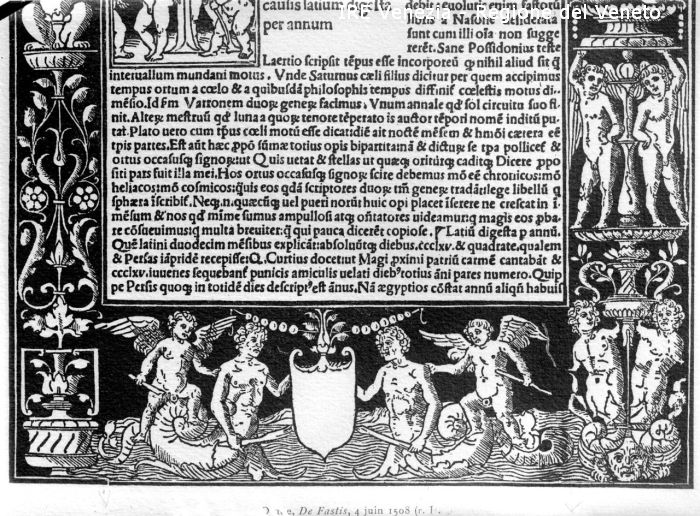 causis latium digesta
per annum
debat
lioni a Nasone
sunt cum illi oīa non sugge
rerēt. Sane Possidonius teste
Laertio scripsit tēpus esse incorporeū q nihil aliud sit q̄
interuallum mundani motus. Vnde Saturnus cœli filius dicitur per quem accipimus
tempus ortum a cœlo & a quibusdā philosophis tempus diffinit cœlestis motus di
mēsio. Id Varronem duoꝝ geneꝝ facimus. Vnum annale qd sol circuitu suo fi
nit. Alteꝝ mēstruū qd luna a quoꝝ tenore tēperato is auctor tēpori nomē inditū pu
tat. Plato uero cum tp̄us cœli motū esse dicat diē ait noctē mēsem & hmōi cætera eē
tpis partes. Est aūt hæc ppō sūmæ totius opis bipartita
ortus occasusq signoꝝ: ut Quis uetat & stellas ut quæq oritūrq caditq Dicere ppo
siti pars suit illa mei. Hos ortus occasusq signoꝝ scire debemus mō eē chronicos: mō
heliacos: mō cosmicos: quis eos qdā scriptores duoꝝ tm̄ geneꝝ tradāt: lege libellū q
sphæra īscribit. uel pueri norūt huic opi placet īserere ne crescat in ī
mēsum & nos qd mīme sumus ampullosi atq oñtatores uideamur: q magis eos pba
re cōsueuimus: q multa breuiter: q̄ qui pauca dicerēt copiose. Latiū digesta p annū.
Quē latini duodecim mēsibus explicāt: absoluūtq diebus. ccclxv. & quadrāte. qualem
& Persas iāpridē recepisse: Curtius docet: ut Magi .pximi patriū carmē cantabāt &
ccclxv. iuuenes sequebant punicis amiculis uelati dieb9 totius āni pares numero. Quip
pe Persis quoq in totidē dies descript9 est ānus. Nā ægyptios cōstat annū aliqñ habuis
De Fastis, 4 juin 1508